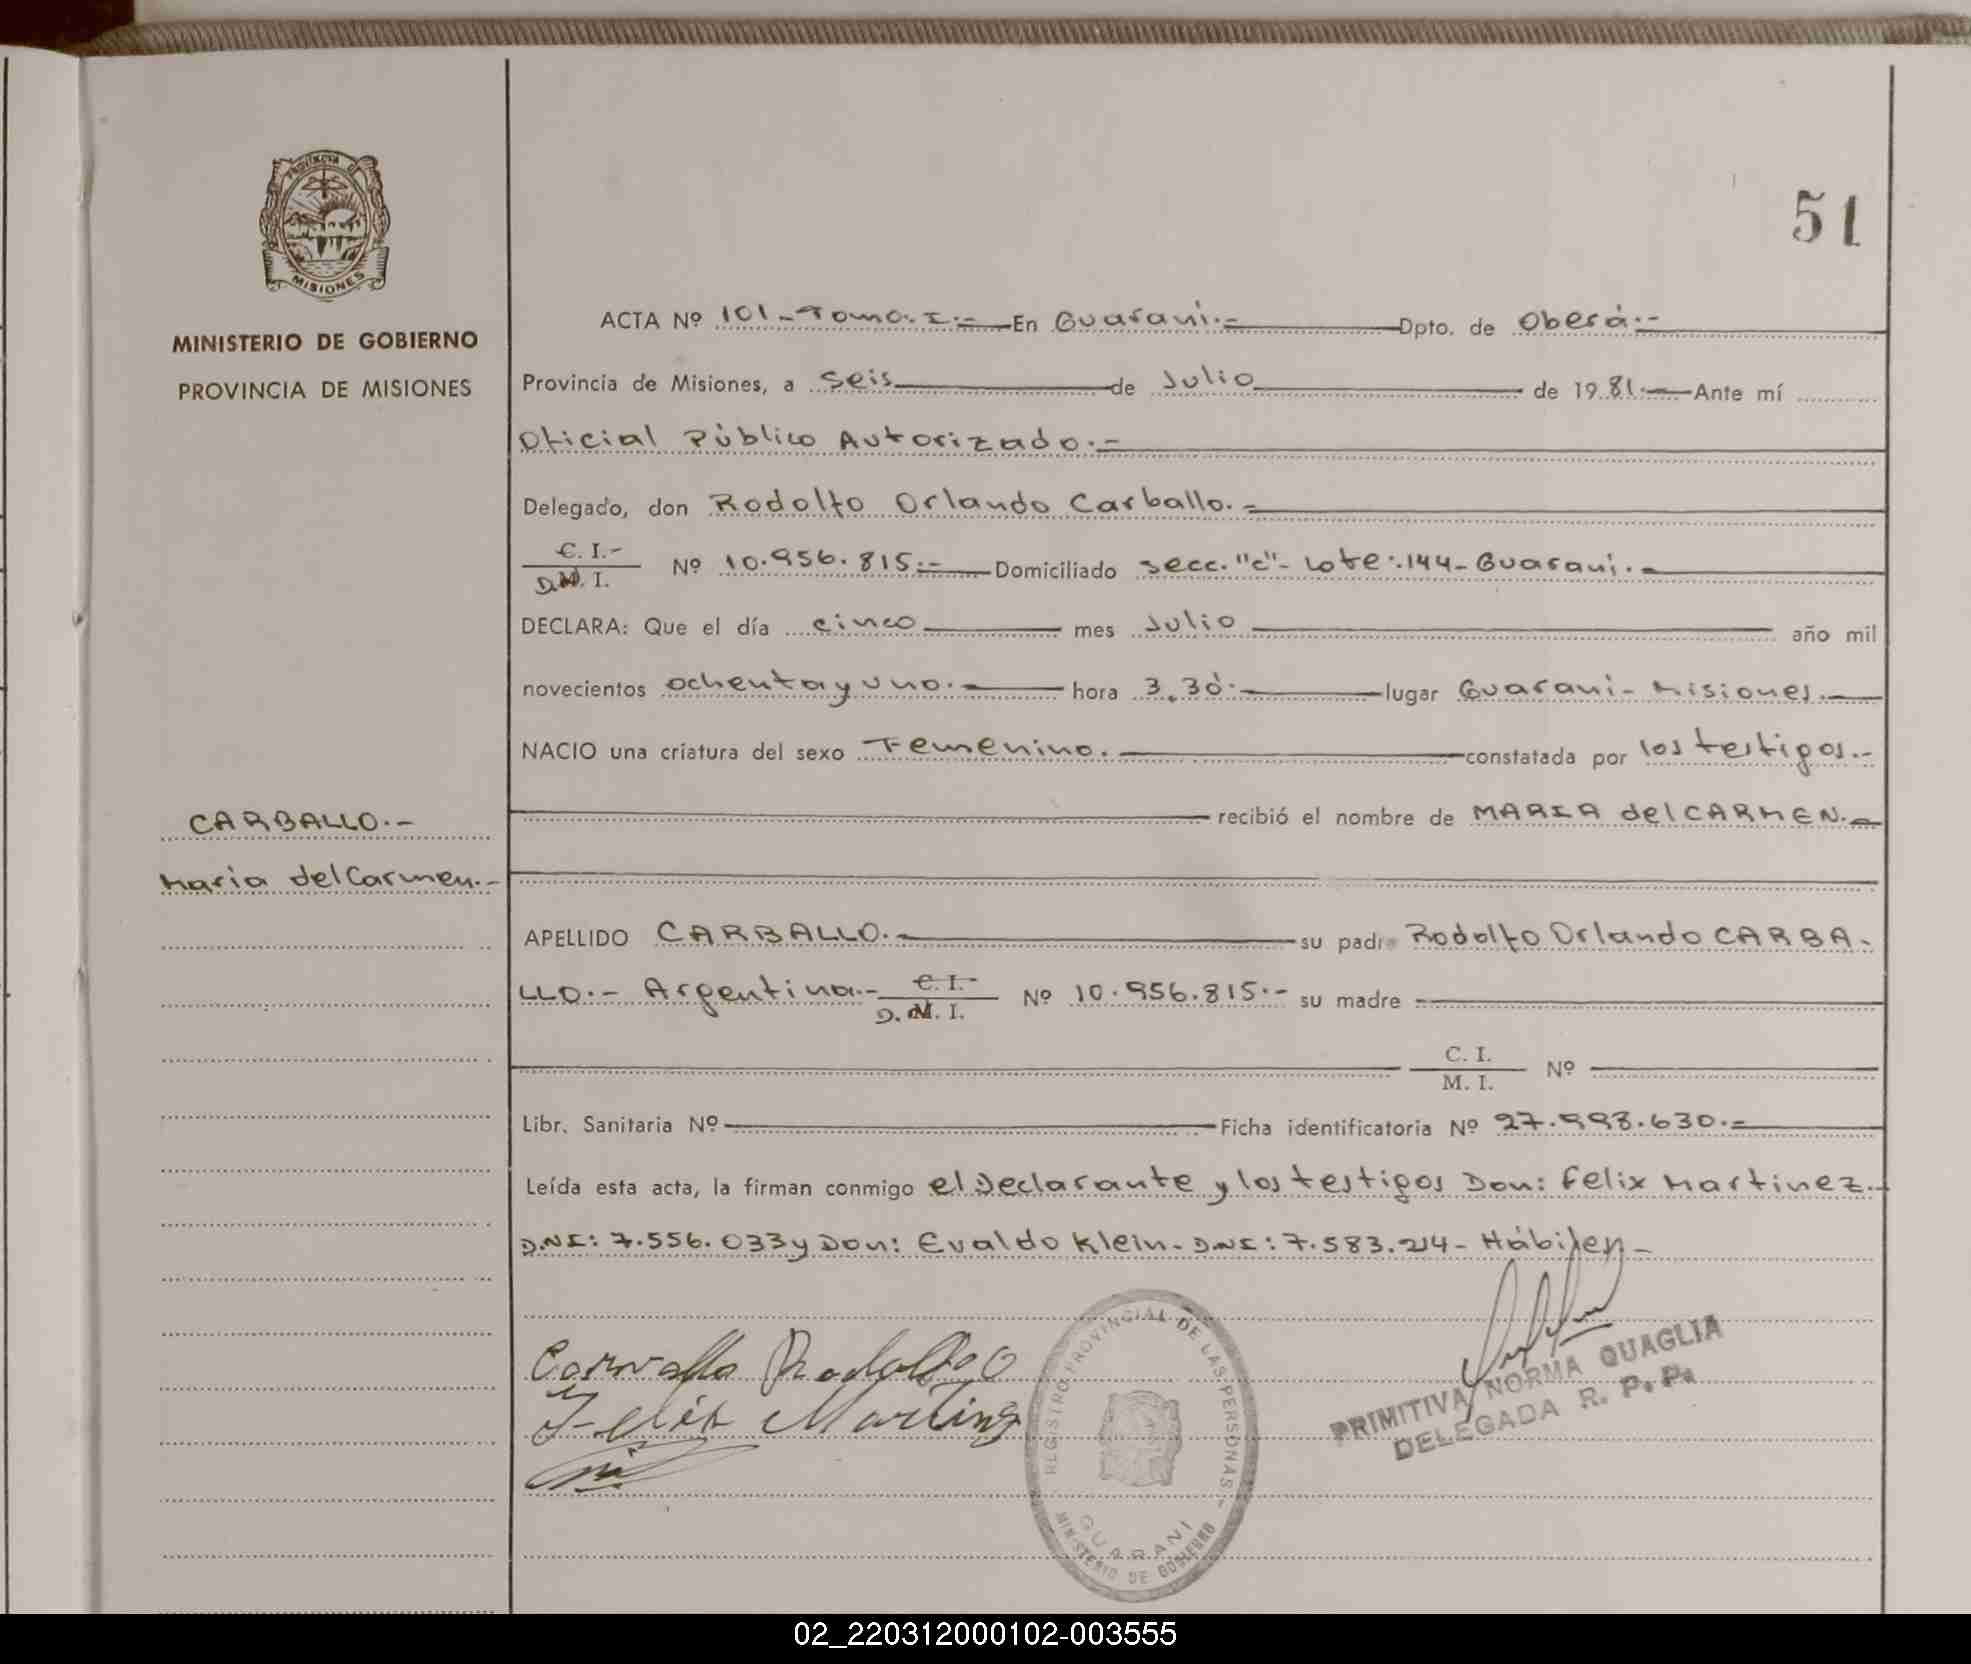 PROVINCIA DE
MISIONES
MINISTERIO DE GOBIERNO
PROVINCIA DE MISIONES
CARBALLO.-
Maria del Carmen.-
51
ACTA Nº 101-Tomo. I.- En Guaraní.- Dpto. de Oberá.-
Provincia de Misiones, a seis de Julio de 1981.- Ante mí
Oficial Público Autorizado.-
Delegado, don Rodolfo Orlando Carballo.-
C. I.-
D.N. I. Nº 10.956.815.- Domiciliado secc. "c"- Lote:.144- Guaraní.-
DECLARA: Que el día cinco mes Julio año mil
novecientos ochenta y uno.- hora 3.30.- lugar Guaraní- Misiones.-
NACIO una criatura del sexo Femenino.- constatada por los testigos.-
recibió el nombre de MARIA del CARMEN.-
APELLIDO CARBALLO.- su padre Rodolfo Orlando CARBA-
LLO.- Argentina.- C. I.- Nº 10.956.815.- su madre
D. M. I.
C. I.
M. I. Nº
Libr. Sanitaria Nº Ficha identificatoria Nº 27.998.630.-
Leída esta acta, la firman conmigo el Declarante y los testigos Don: Felix Martinez.-
D.N.I: 7.556.033 y Don: Evaldo Klein- D.N.I: 7.583.214- Hábiles-
Carvallo Rodolfo O
Felix Martinez
REGISTRO PROVINCIAL DE LAS PERSONAS -
GUARANI
MINISTERIO DE GOBIERNO
PRIMITIVA NORMA QUAGLIA
DELEGADA R. P. P.
02_220312000102-003555